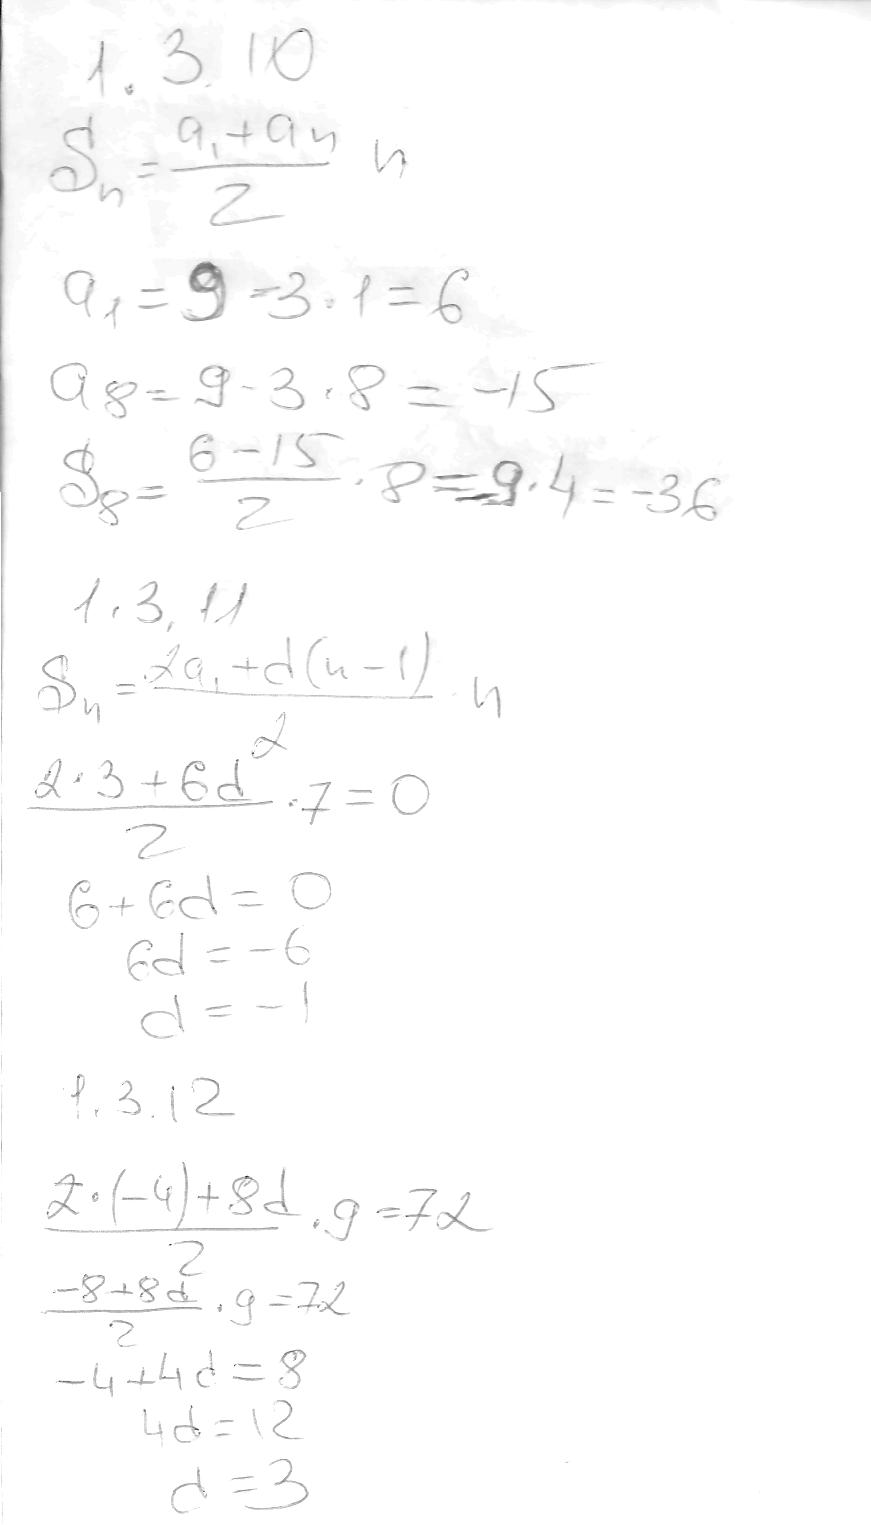 1.3.10
Sₙ = (a₁ + aₙ)/2 n
a₁ = 9 - 3 · 1 = 6
a₈ = 9 - 3 · 8 = -15
S₈ = (6 - 15)/2 · 8 = -9 · 4 = -36
1.3.11
Sₙ = (2a₁ + d(n - 1))/2 · n
(2 · 3 + 6d)/2 · 7 = 0
6 + 6d = 0
6d = -6
d = -1
1.3.12
(2 · (-4) + 8d)/2 · 9 = 72
(-8 + 8d)/2 · 9 = 72
-4 + 4d = 8
4d = 12
d = 3